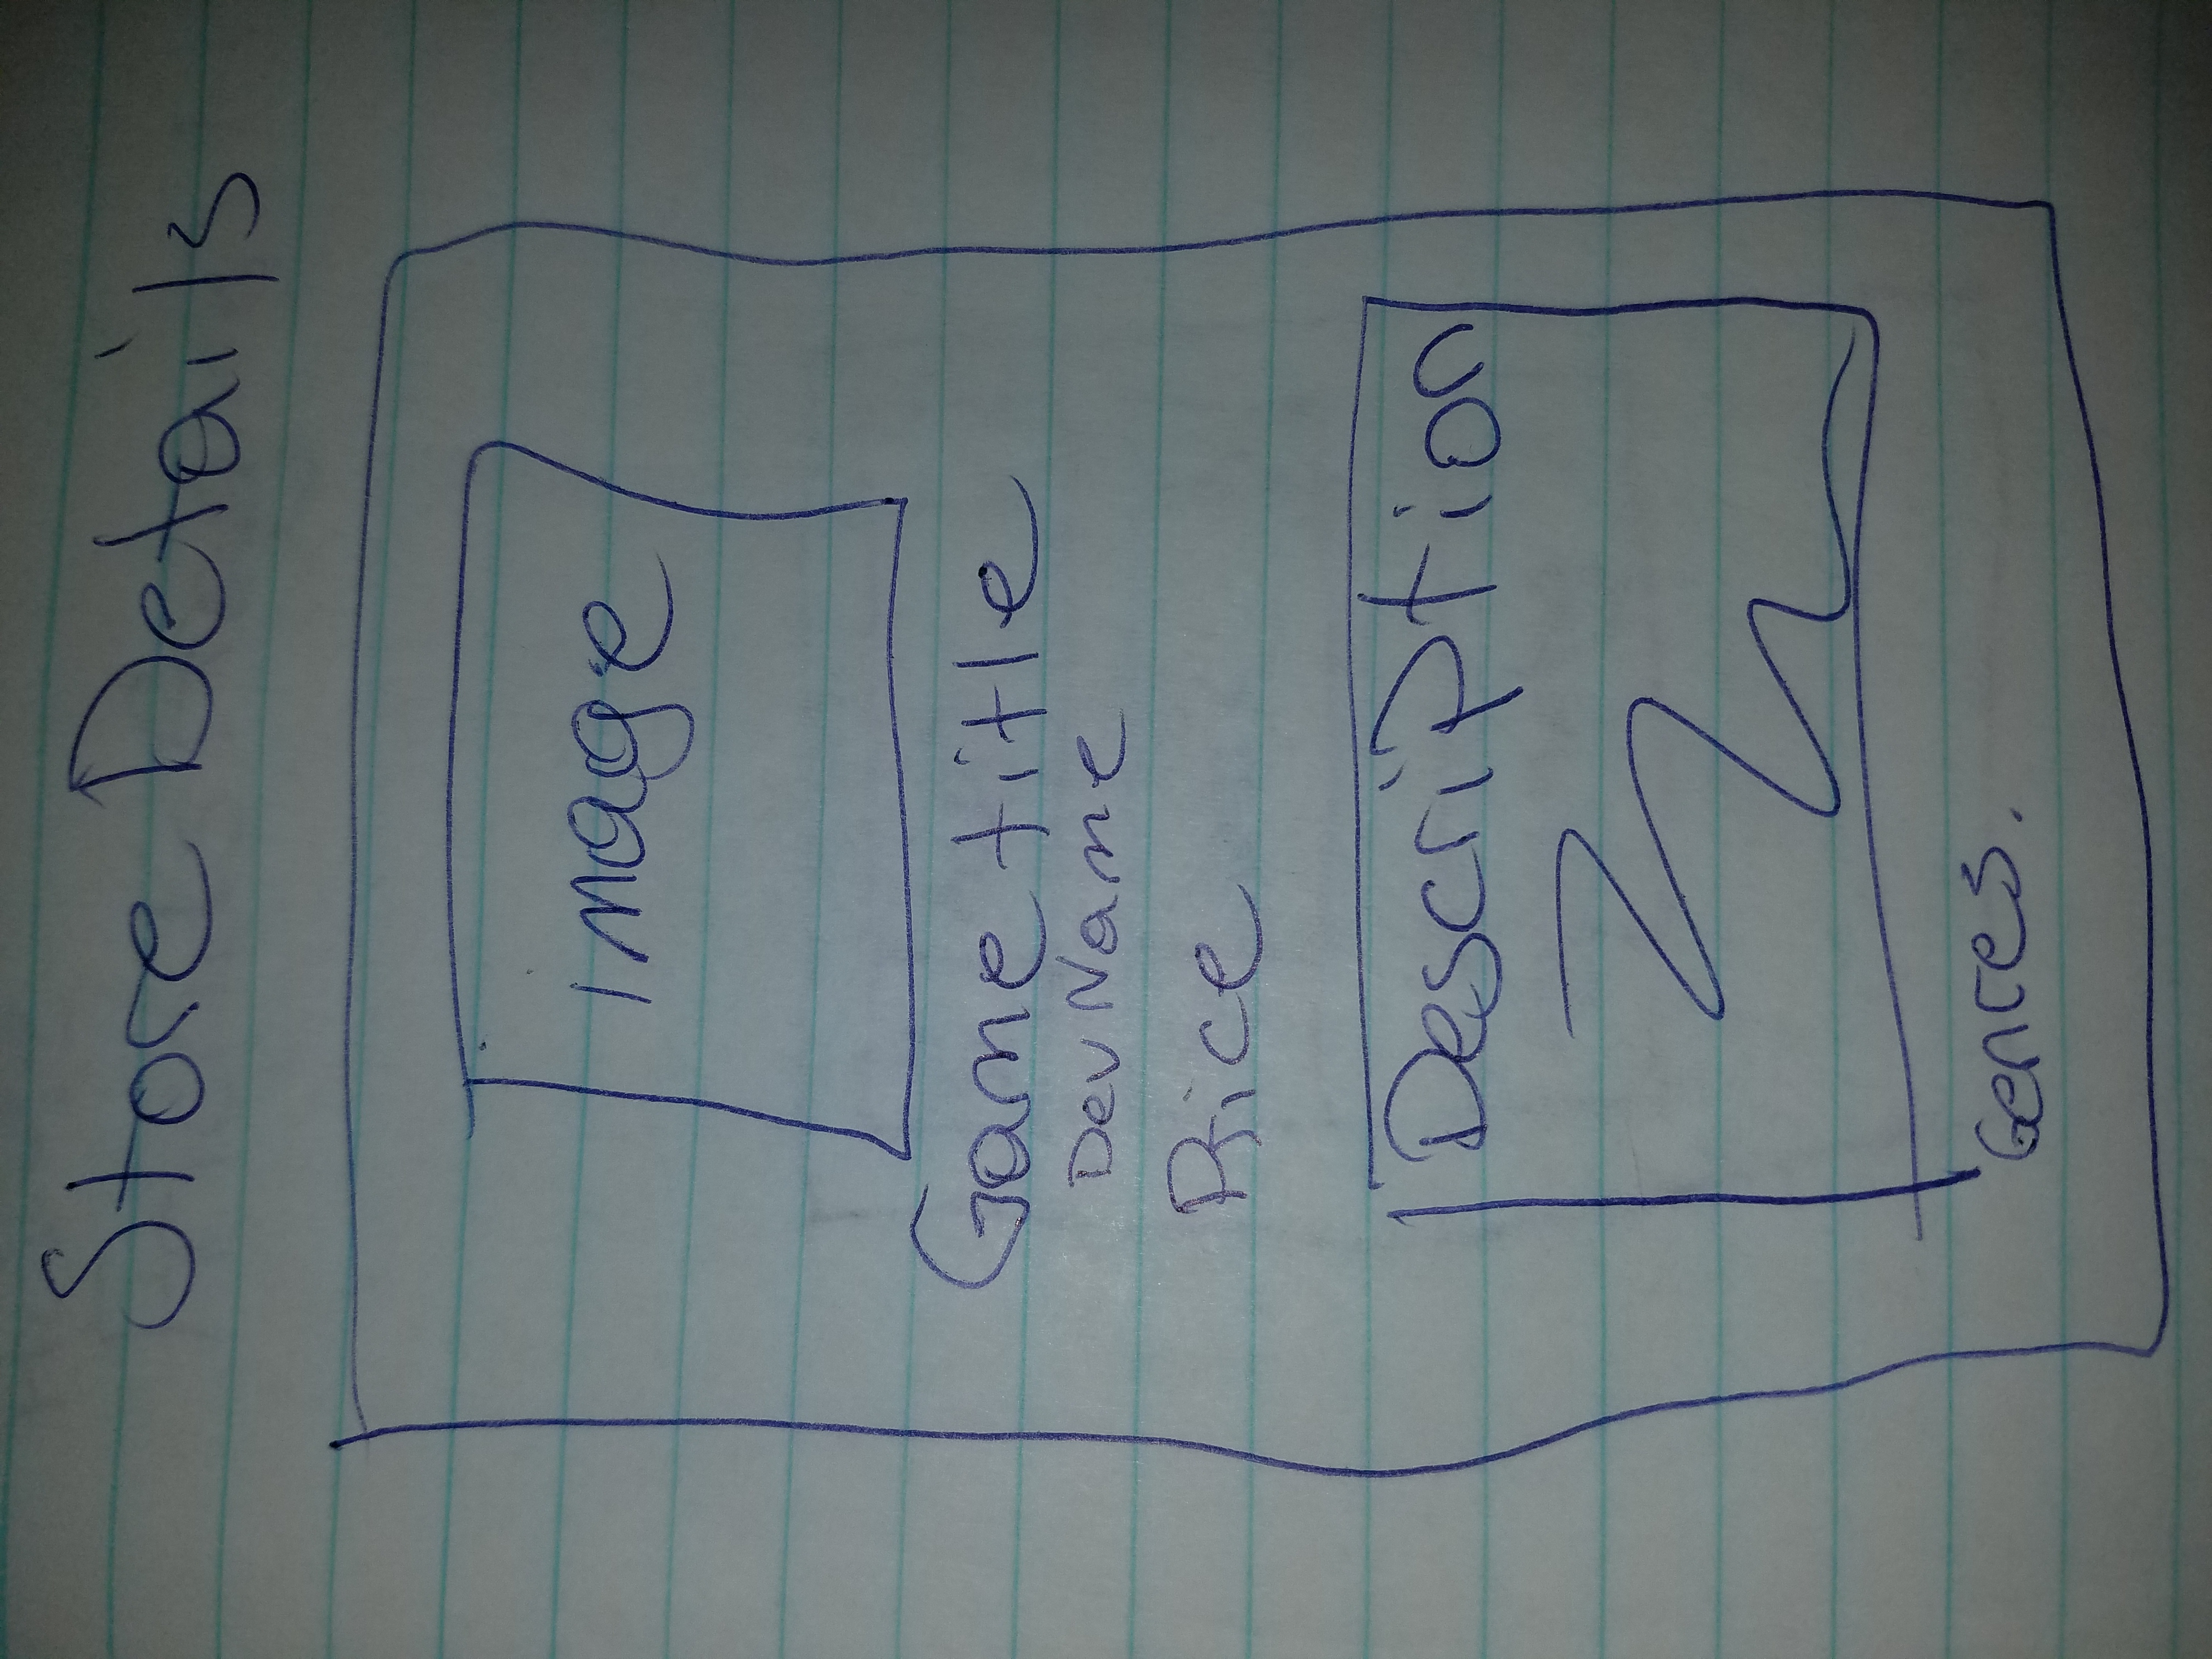 Store Details
image
Game title
Dev Name
Price
Description
Genres.